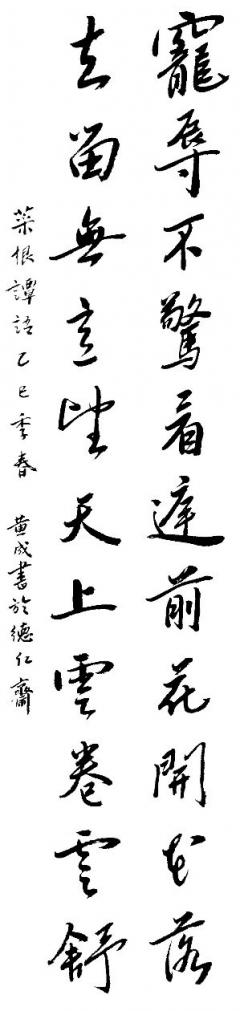 寵辱不驚看庭前花開花落
去留無意望天上雲卷雲舒
菜根譚語乙巳季春 黃成書於德仁齋